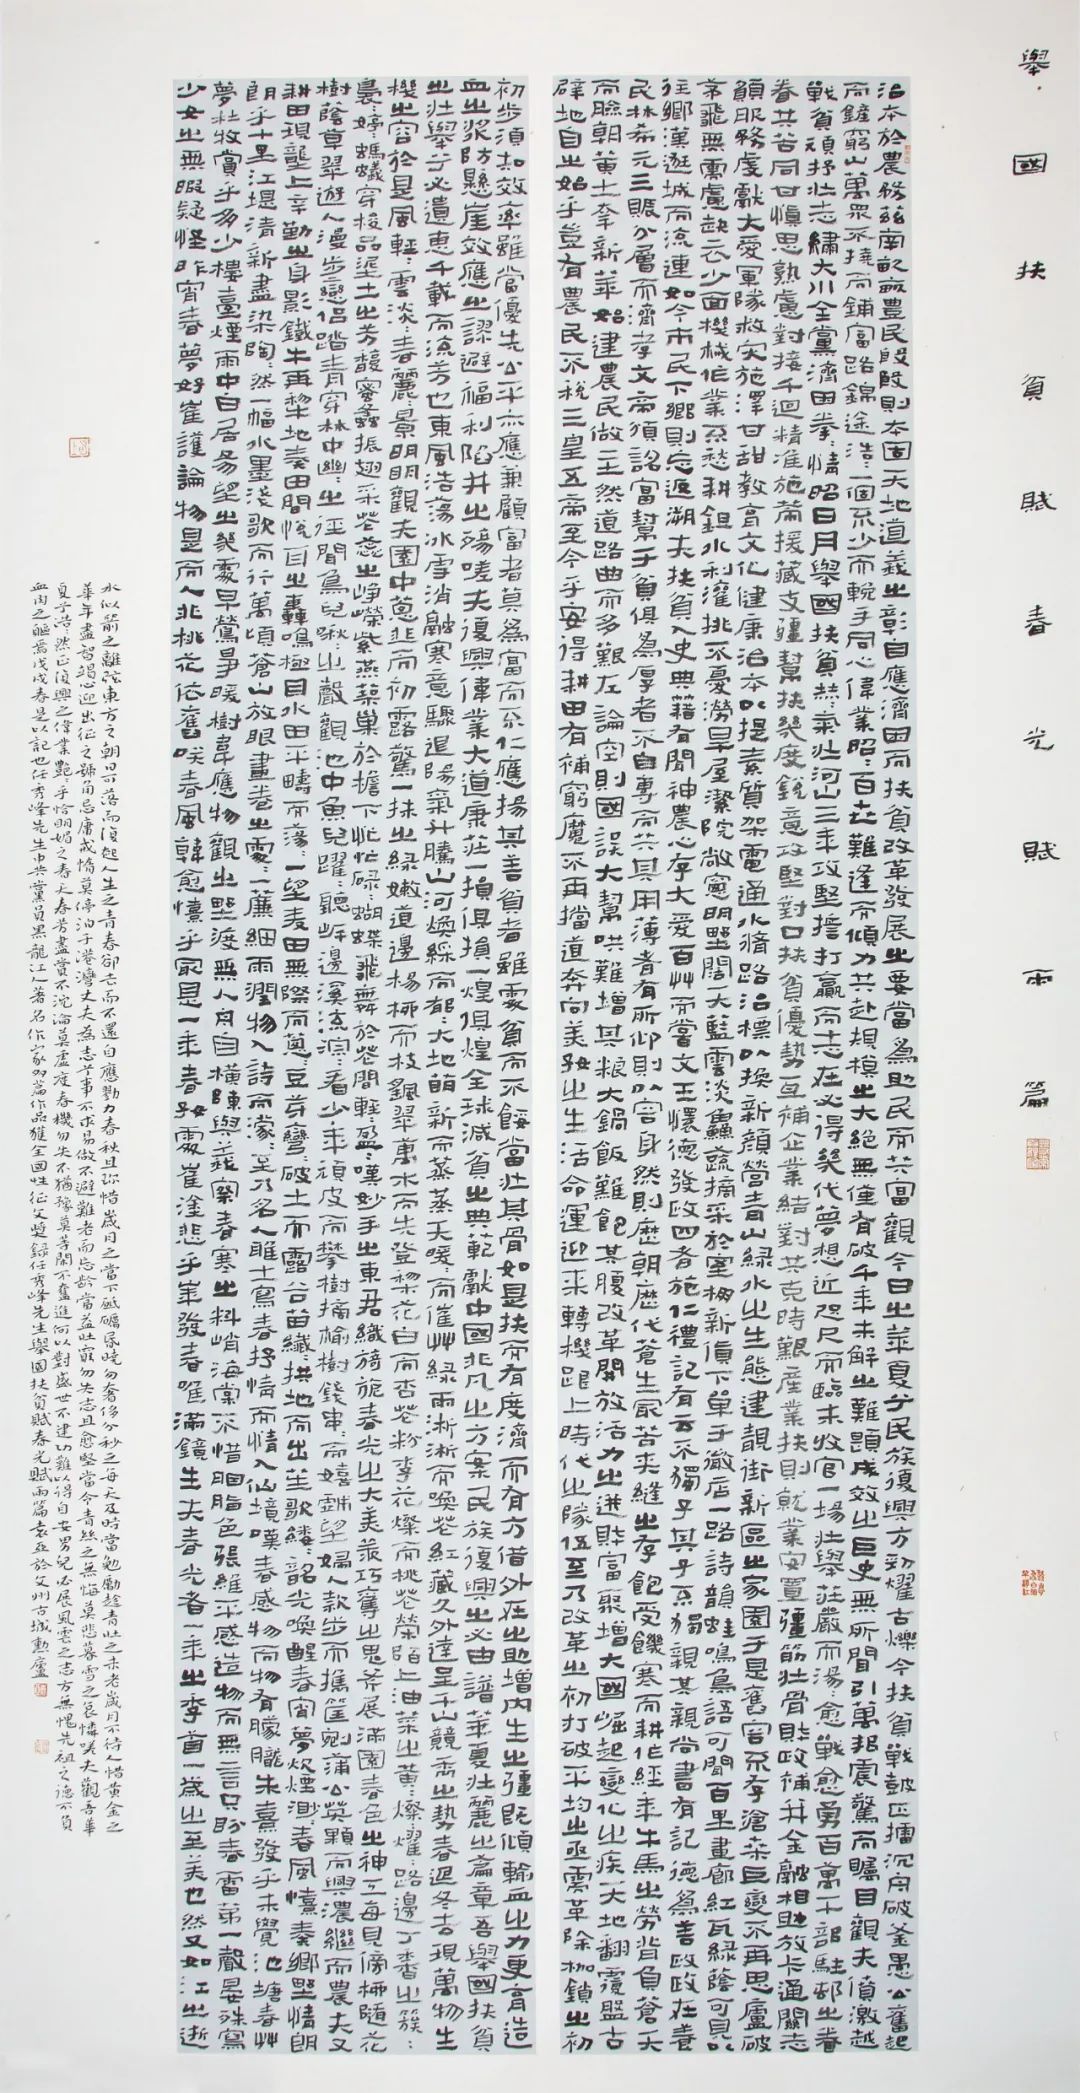 舉國扶貧賦春光賦兩篇
治本於農務茲南畝畝豊民殷殷則本固天地道義之彰自應濟困而扶貧改革發展之要當為助民而共富觀今日之華夏兮民族復興方初燿古爍今扶貧戰鼓正擂沉舟破釜愚公奮起
而鏟窮山萬眾不撓而鋪富路錦途浩浩一個不少而輓手同心偉業昭昭百世難逢而傾力共赴規模之大絕無僅有破千年未解之難題成效之巨史無所聞引萬邦震驚而矚目觀夫僨激越
戰貧頑抒壯志繡大川全黨濟困拳拳情昭日月舉國扶貧赫赫氣壯河山三年攻堅擔打贏而志在必得幾代夢想近咫尺而臨末收官一場壯舉莊嚴而湯湯愈戰愈勇百萬干部駐邨之眷
眷共苦同甘慎思熟慮對接千迴精准施策援藏支疆幫扶幾度銳意攻堅對口扶貧優勢互補企業結對共克時艱產業扶則就業安置彊筋壯骨財政補并金融相助放卡通關志
願服務虔獻大愛軍隊救灾施澤甘甜教育文化健康治本以提素質架電通水脩路治標以換新顏營青山綠水之生態建靚街新區之家園于是舊容不存滄桑巨變不再思廬破
常飛無需慮缺衣少面機械作業不愁耕鉏水利灌排不憂澇旱屋潔院敞窻明墅闊天藍雲淡魚蔬摘采於室栅新貨下單于微店一路詩韻蛙鳴鳥語可聞百里畫廊紅瓦綠蔭可見以
往鄉漢逛城而流連如今市民下鄉則忘返溯夫扶貧入史典藉有聞神農心存大愛百艸而嘗文王懷德發政四者施仁禮記有云不獨子其子不獨親其親尚書有記德為善政政在養
民林希元三賬分層而濟孝文帝頒詔富幫于貧俱為厚者不自專而共其用薄者有所仰則以容身然則歷朝歷代蒼生家苦夾縫之存飽受饑寒而耕作經年牛馬之勞背負蒼天
而臉朝黃土拿新華始建農民做主然道路曲而多艱左論空則國誤大幫哄難增其粮大鍋飯難飽其腹改革開放活力之迸財富聚增大國崛起變化之疾天地翻覆盤古
辟地自之始乎豈有農民不稅三皇五帝至今乎安得耕田有補窮魔不再擋道奔向美好之生活命運迎來轉機跟上時代之隊伍至乃改革之初打破平均之亟需革除枷鎖之初
初步須知效率雖當優先公平亦應兼顧富者莫為富而不仁應揚其善貧者雖處貧而不餒當壯其骨如是扶而有度濟而有方借外在之助增內生之彊既傾輸血之力更育造
血之漿防懸崖效應之謬避福利陷井之殤嗟夫復興偉業大道康莊一損俱損一煌俱煌全球減貧之典範獻中國非凡之方案民族復興之必由譜華夏壯麗之篇章吾舉國扶貧
之壯舉兮必遺惠千載而流芳也東風浩蕩冰雪消融寒意驟退陽氣升騰山河煥綵而郁郁大地萌新而蒸蒸天暖暖而催艸綠雨淅淅而喚花紅藏久外達呈千山競秀之勢春返冬去現萬物生
機之容於是風輕輕雲淡淡春麗麗景明明觀夫園中蔥韭而初露驚一抹之綠嫩道邊楊柳而枝飄翠裏水而先登梨花白而杏花粉李花燦而桃花榮陌上油菜之黃黃燦燿燿路邊丁香之簇簇
裏裏婷婷螞蟻穿梭品埿土之芳馥蜜蠭振翅采花蕊之崢嶸紫燕築巢於檐下忙忙碌碌蝴蝶飛舞於花間輕輕盈盈嘆妙手之東君織旖旎春光之大美羨巧奪之鬼斧展滿園春色之神工每見傍柳隨花
樹蔭草翠遊人漫步戀侶踏青穿林中幽幽之徑聞鳥兒啾啾之聲觀池中魚兒躍躍聽岍邊溪流淙淙看少年頑皮而攀樹摘榆樹錢串串而嬉鬧望婦人款步而攜筐剜蒲公英顆而興濃繼而農夫又
耕田現壟上辛勤之身影鐵牛再犂地奏田間悅耳之轟鳴極目水田平疇而蕩蕩一望麦田無際而蔥蔥豆芽彎彎破土而露谷苗纖纖拱地而出茎歌縷縷韶光喚醒春宵夢炊煙渺渺春風慣奏鄉墅情朗
朗乎十里江堤清新盡染陶陶然一幅水墨淺歌而行萬頃蒼山放眼畫卷之處處一廉細雨潤物入詩而濛濛至乃名人雎士寫春抒情而情入仙境嘆春感物而物有朦朧朱熹發乎未覺池塘春艸
夢杜牧賞乎多少樓臺煙雨中白居易望之幾處早鶯爭暖樹韋應物觀之墅渡無人舟自橫陳與義寮春寒之料峭海棠不惜胭脂色張維平感造物而無言只盼春雷第一聲晏殊寫
少女之無暇疑怪昨宵春夢好崔護論物是而人非桃花依舊咲春風韓愈懷乎最是一年春好處崔塗悲乎華發春唯滿鏡生夫春光者一年之季首一歲之至美也然又如江之逝
水似箭之離弦東方之朝日可落而復起人生之青春卻去而不還自應勠力春秋且弥惜歲月之當下砥礪昏曉勿奢侈分秒之每天及時當勉勵趁青壯之未老歲月不待人惜黃金之
華年盡智竭心迎出征之號角忌庸戒惰莫停泊于港灣丈夫為志乎事不求易做不避難老而忘齡當益壯窮勿失志且愈堅當今青絲之無悔莫悲暮雪之哀憐嘆夫觀吾華
夏子浩浩然正復興之偉業艷艷乎恰明媚之春天春芳盡賞不沉淪莫虛度春機勿失不猶豫莫等閑不奮進何以對盛世不建功難以得自安男兒必展風雲之志方無愧先祖之德不負
血肉之軀焉戊戌春是以記也任秀峰先生中共黨員黑龍江人著名作家多篇作品獲全國性征文獎錄任秀峰先生舉國扶貧賦春光賦兩篇袁亚於文州古城勲廬